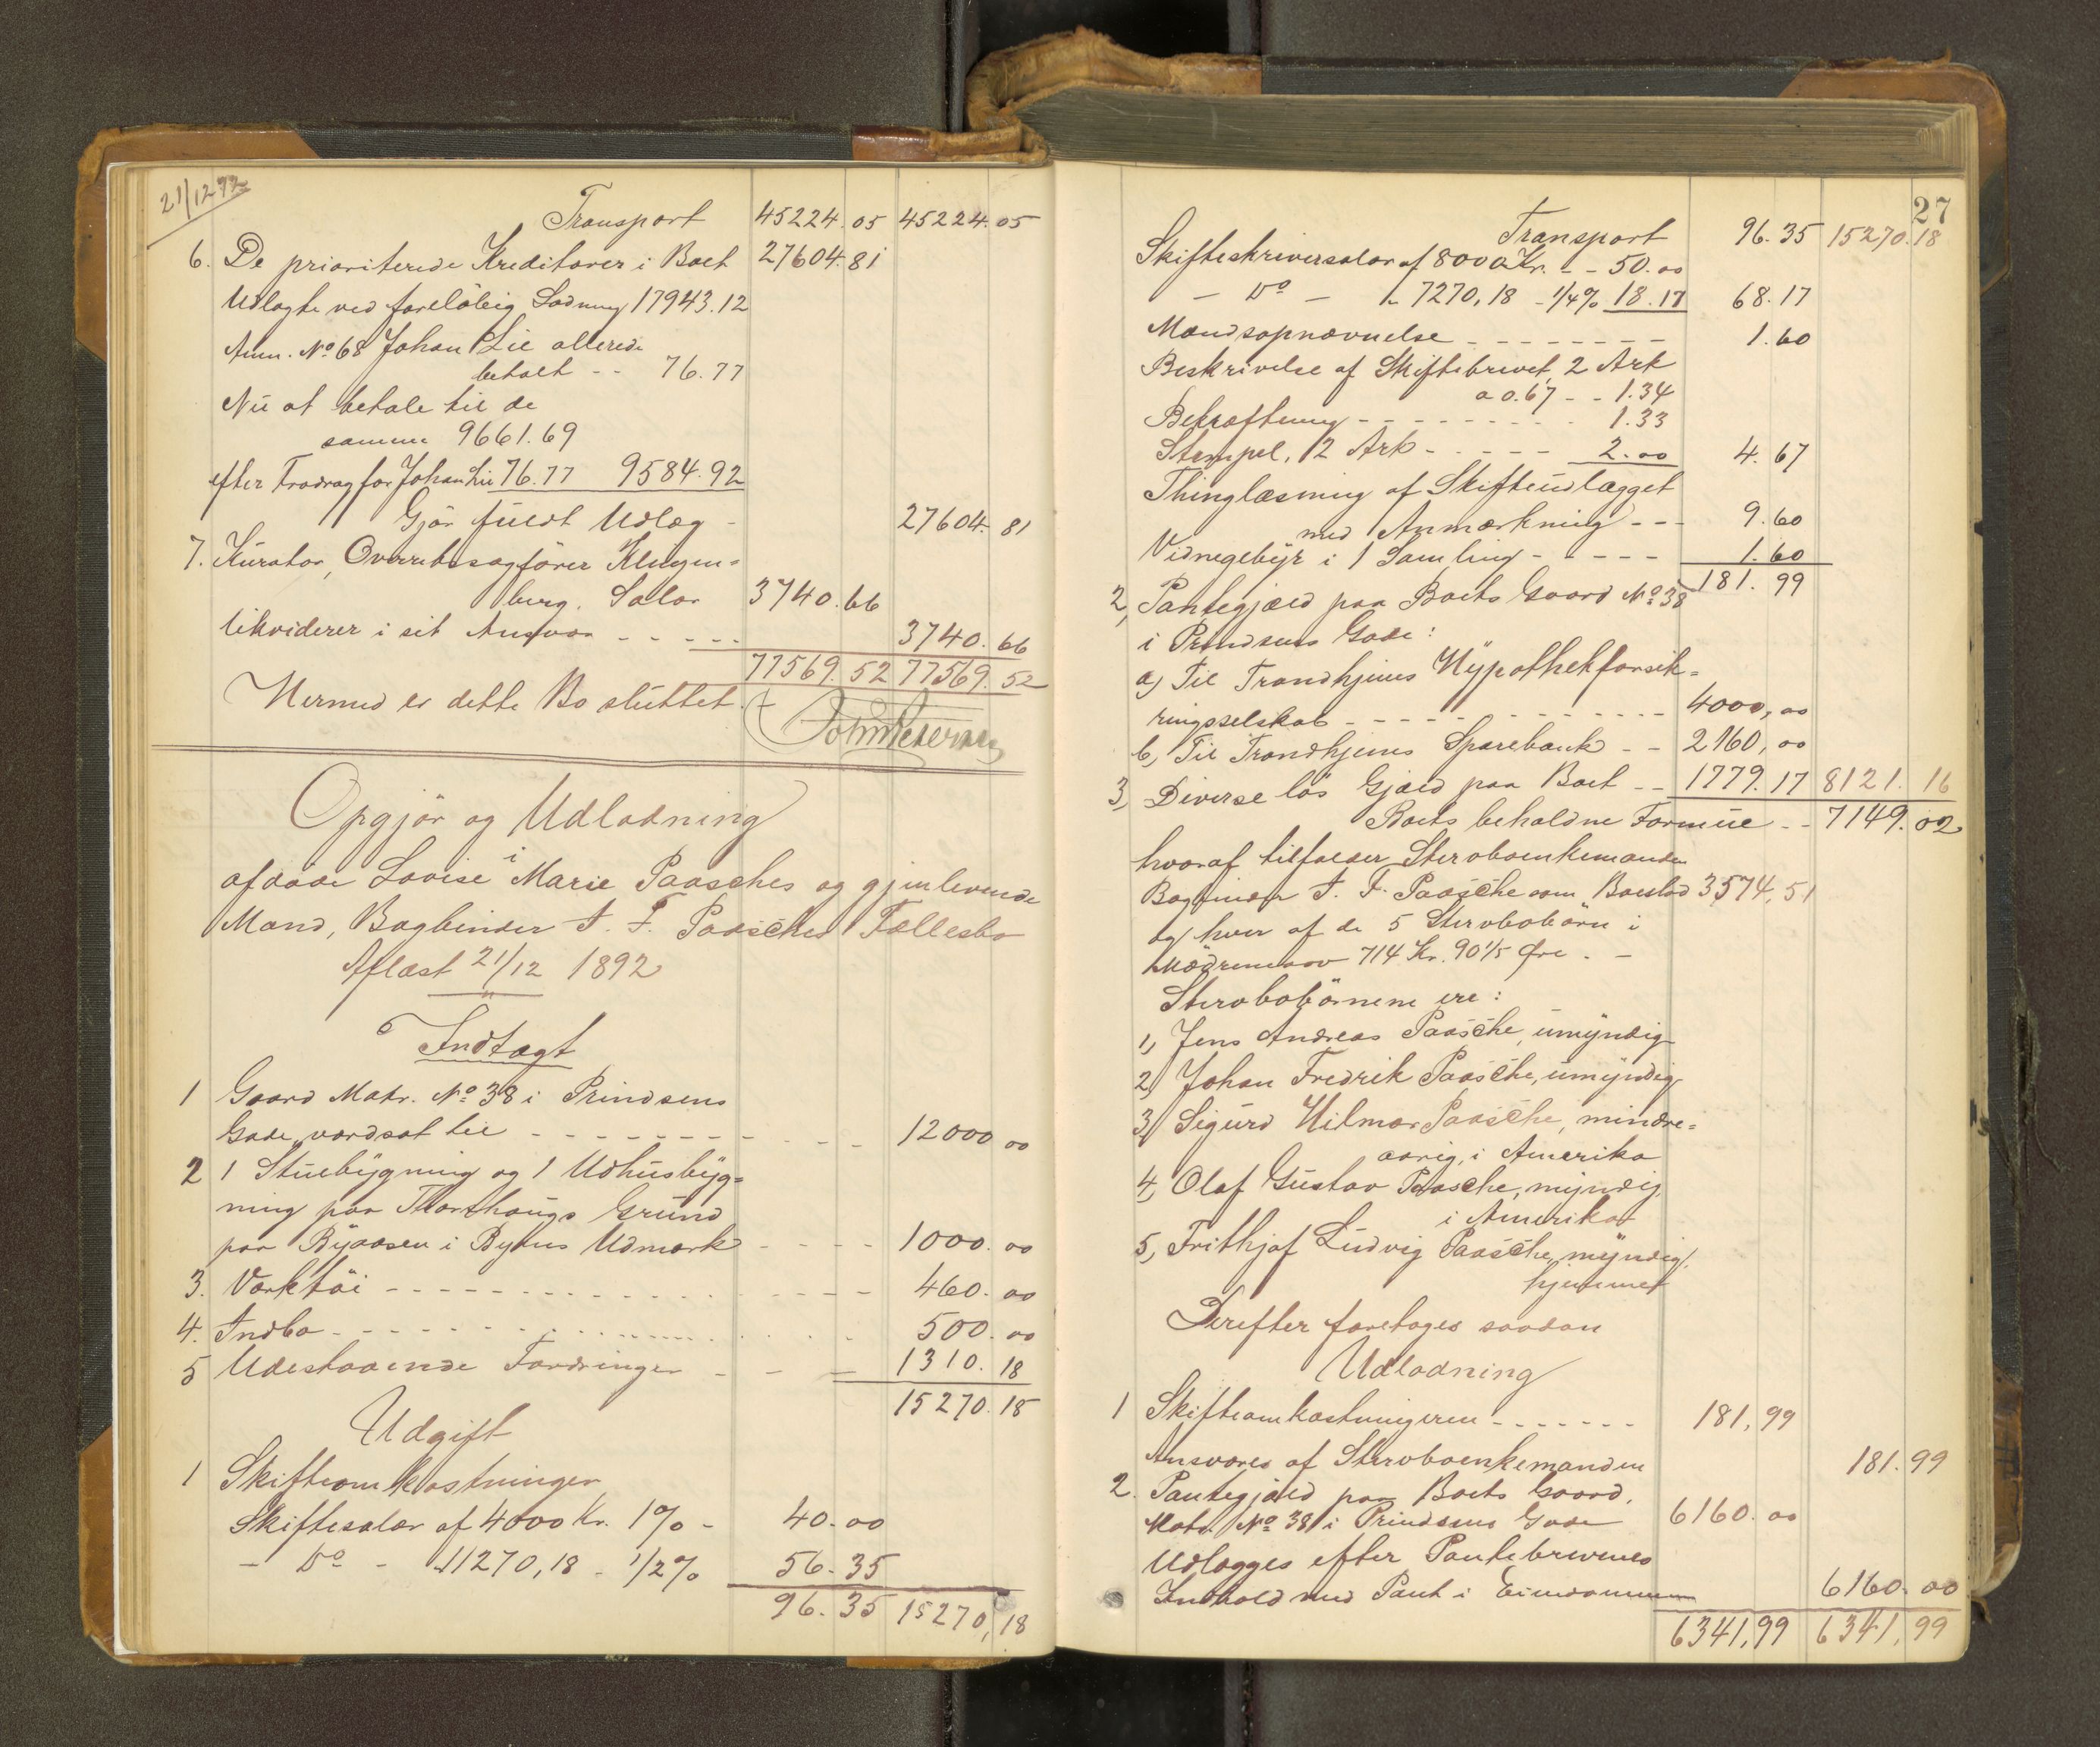 21/12 92
Transport 45224.05 45224.05
6. De prioriterede Kreditorer i Boet 27604.81
Udlagte ved foreløbig Lodning 17943.12
Anm. No 68 Johan Lie allerede
betalt -- 76.77
Nu at betale til de
samme 9661.69
efter Fradrag for Johan Lie 76.77 9584.92
Gjør fuldt Udlæg - 27604.81
7. Kurator, Overretssagfører Klingen=
berg. Salær 3740.66
likviderer i sit Ansvar ----- 3740.66
77569.52 77569.52
Hermed er dette Bo sluttet.
Opgjør og Udlodning
i
afdøde Lovise Marie Paasches og gjenlevende
Mand, Bogbinder J. F. Paasches Fællesbo
Aflæst 21/12 1892
Indtægt
1 Gaard Matr. No 38 i Prindsens
Gade værdsat til - - - - - - - - - 12000 00
2 1 Stuebygning og 1 Udhusbyg=
ning paa Thorshaugs Grund
paa Byaasen i Byens Udmark - - - - 1000.00
3. Værktøi - - - - - - - - - - - 460.00
4. Indbo - - - - - - - - - - - 500.00
5 Udestaaende Fordringer - - - 1310.18
15270.18
Udgift
1 Skifteomkostninger
Skiftesalær af 4000 Kr. 1% - 40.00
- Do - 11270,18 - 1/2% 56.35
96.35 15270,18
27
Transport 96.35 15270.18
Skifteskriversalær af 8000 Kr. -- 50.00
- Do - " 7270,18 - 1/4% 18.17 68.17
Mandsopnævnelse - - - - - - - - 1.60
Beskrivelse af Skiftebrevet, 2 Ark
a 0.67 -- 1.34
Bekræftning - - - - - - - - 1.33
Stempel, 2 Ark - - - - - 2.00 4.67
Thinglæsning af Skifteudlægget
med Anmærkning --- 9.60
Vidnegebyr i 1 Samling - - - - - 1.60
181.99
2, Pantegjæld paa Boets Gaard No 38
i Prindsens Gade:
a) Til Trondhjems Hypothekforsik=
ringsselskab - - - - - - - - - - - 4000,00
b, Til Trondhjems Sparebank -- 2160,00
3, Diverse løs Gjæld paa Boet -- 1779.17 8121.16
Boets beholdne Formue -- 7149.02
hvoraf tilfalder Stervboenkemanden
Bogbinder J. F. Paasche som Boeslod 3574,51
og hver af de 5 Stervbobørn i
Mødrenearv 714 Kr. 90 1/5 Øre. -
Stervbobørnene ere:
1, Jens Andreas Paasche, umyndig
2, Johan Fredrik Paasche, umyndig
3, Sigurd Hilmar Paasche, mindre=
aarig, i Amerika
4, Olaf Gustav Paasche, myndig,
i Amerika
5, Frithjof Ludvig Paasche, myndig,
hjemme
Derefter foretages saadan
Udlodning
1 Skifteomkostningerne - - - - - - - 181,99
Ansvares af Stervboenkemanden 181.99
2. Pantegjæld paa Boets Gaard,
Matr. No 38 i Prindsens Gade 6160.00
Udlægges efter Pantebrevenes
Indhold med Pant i Eiendommen 6160.00
6341,99 6341,99